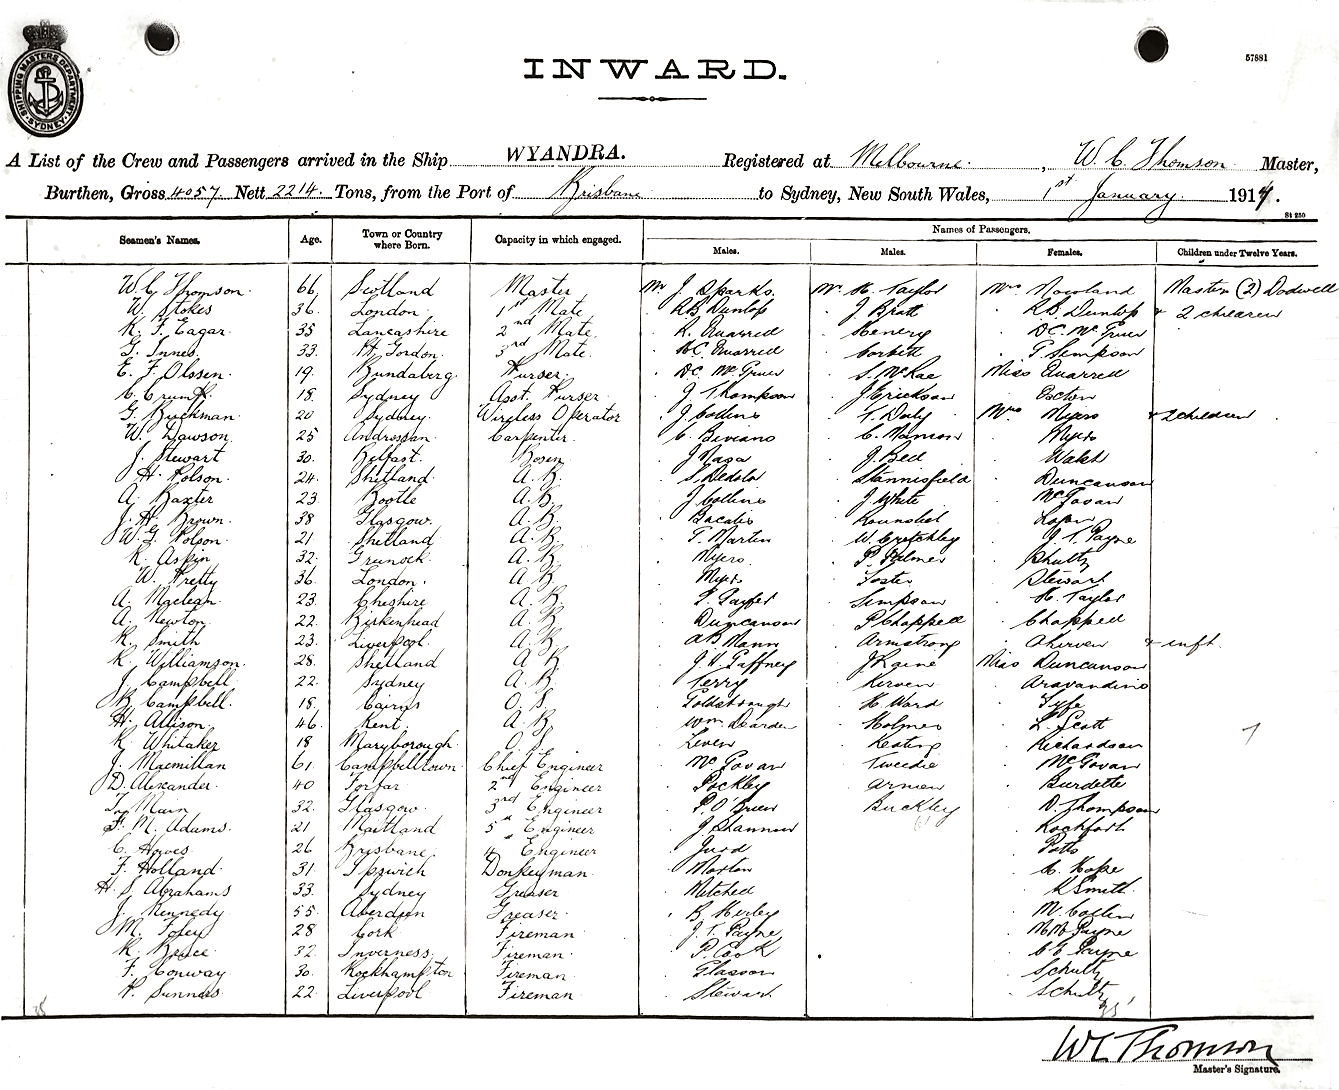 SHIPPING MASTERS DEPARTMENT
SYDNEY
57881
INWARD.
A List of the Crew and Passengers arrived in the Ship WYANDRA. Registered at Melbourne. , W. C. Thomson Master,
Burthen, Gross 4057 Nett 2214 Tons, from the Port of Brisbane to Sydney, New South Wales, 1st January. 1914.
S1 250
Seamen's Names. Age. Town or Country where Born. Capacity in which engaged. Names of Passengers.
Males. Males. Females. Children under Twelve Years.
W. C. Thomson. 66 Scotland Master Mr J. Sparks. Mr H. Taylor Mrs Rowland Masters (2) Dodwell
W. Stokes 36. London. 1st Mate RB Dunlop J. Bratt RB Dunlop & 2 children
R. F. Eagar. 35 Lancashire 2nd Mate. R. Quarred Henery DC Mc Gruer
G. Innes. 33. Pt Gordon. 3rd Mate. HC Quarred Corbett T Simpson
E. F. Olssen. 19. Bundaberg. Purser. DC Mc Gruer S. McRae Miss Quarred
C. Crump. 18. Sydney Asst. Purser. J Thompson J Erickson Exton
G. Buckman. 20 Sydney. Wireless Operator J. Collins T. Daly Mrs Myers & 2 children
W. Dawson. 25 Ardrossan. Carpenter. C. Biviano C. Manson Myers
J. Stewart 30. Belfast. Bosen J Nasa J. Bell Walsh
H. Polson. 24. Shetland. A. B. S. Dedola Stannisfield Duncanson
A. Baxter 23. Bootle A. B. J Collins J White McGavan
J. H. Brown. 38 Glasgow. A. B. Bacalis Logan
W. G. Polson. 21 Shetland A. B. T. Martin W. Critchley J. T. Payne
R. Askin 32. Grenock. A. B. Myers. P. Palmer Shultz
W. Pretty 36. London. A. B. Myers Foster Stewart
A. Maclean 23. Cheshire A. B. Simpson H. Taylor
A. Newton. 22. Birkenhead A. B. Duncanson P Chappell Chappell
R. Smith 23. Liverpool. A. B. A B Mann Armstrong & inft.
R. Williamson. 28. Shetland A. B. J. H Gaffney J Raine Miss Duncanson
J. Campbell 22. Sydney A. B. Terry Kerwin Aravandino
B. Campbell. 18. Cairns O. S. Goldsbrough H Ward Fyfe
H. Allison. 46. Kent. A. B. Wm Dearden Holmes L. Scott
R. Whitaker 18 Maryborough. O. S. Leven Keating Richardson
J. Macmillan 61. Campbelltown. Chief Engineer McGovan Tweedie McGovan
D. Alexander. 40 Forfar. 2nd Engineer Pockley Burdette
Main 32. Glasgow. 3rd Engineer P. O'Brien Buckley D Thompson
F. M. Adams. 21 Maitland 5th Engineer J. Shannon Rochfort
C. Howes 26 Brisbane. 4 Engineer Judd Potts
F. Holland. 31 Ipswich Donkeyman Morton C. Hope
H. S. Abrahams 33. Sydney Greaser Mitchell R Smith.
J. Kennedy 55. Aberdeen Greaser B. Hurley M. Collin
M. Foley 28 Cork Fireman J. T. Payne Payne
R. Bruce 32. Inverness. Fireman P. Cook C E Payne
F. Conway 30. Rockhampton Fireman Glasson Schultz
P. Sunners 22. Liverpool Fireman Stewart Schultz
WC Thomson
Master's Signature.